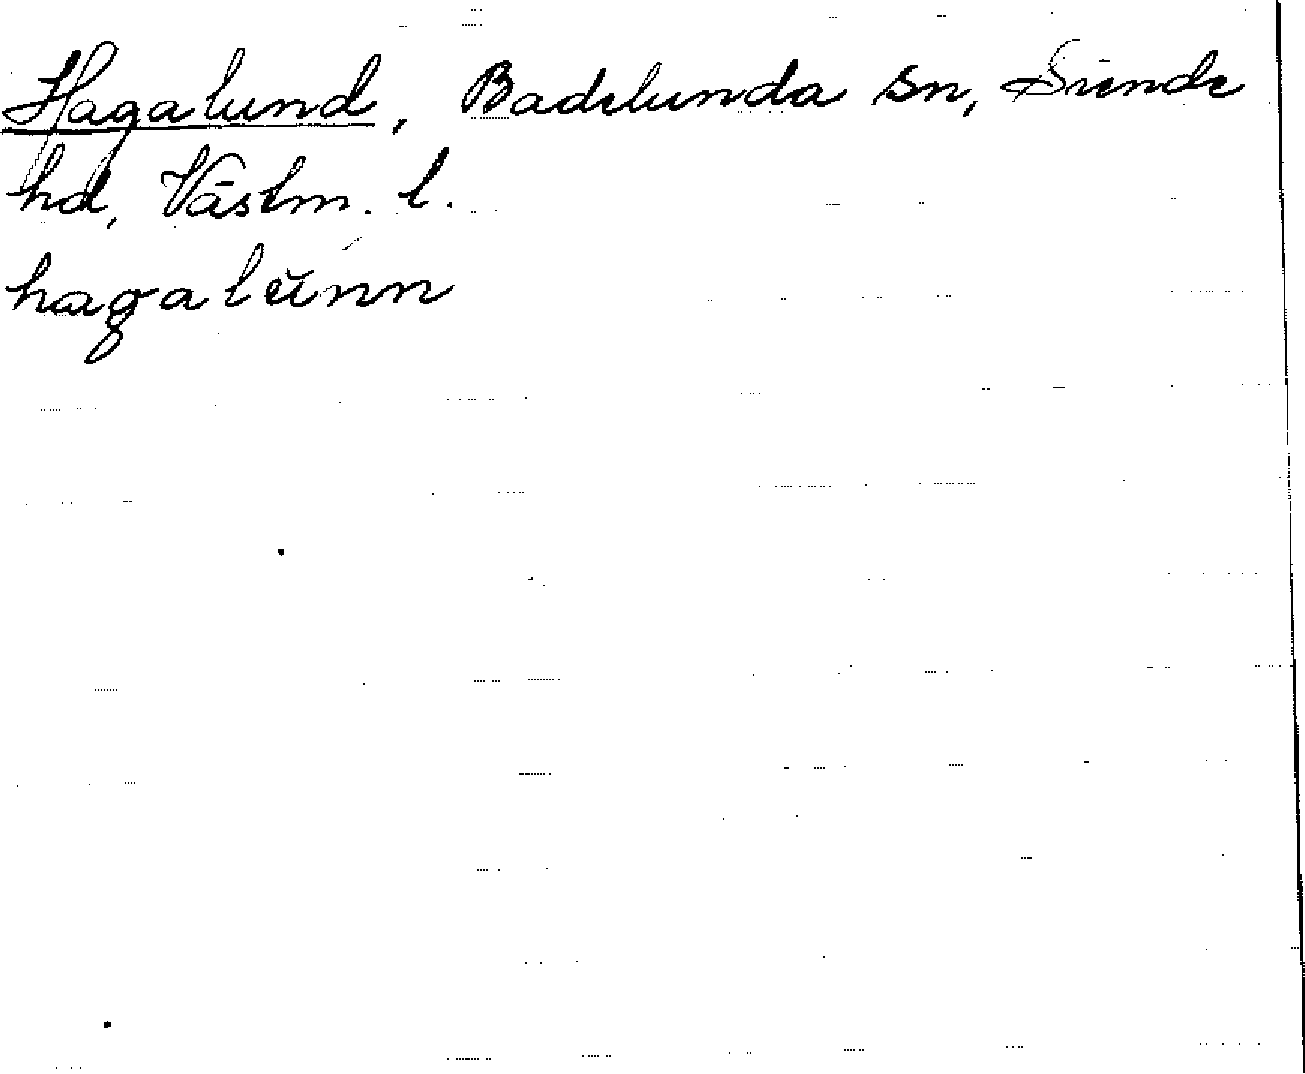 Hagalund, Badelunda sn, Siende
hd, Västm. l.
hagalŭnn